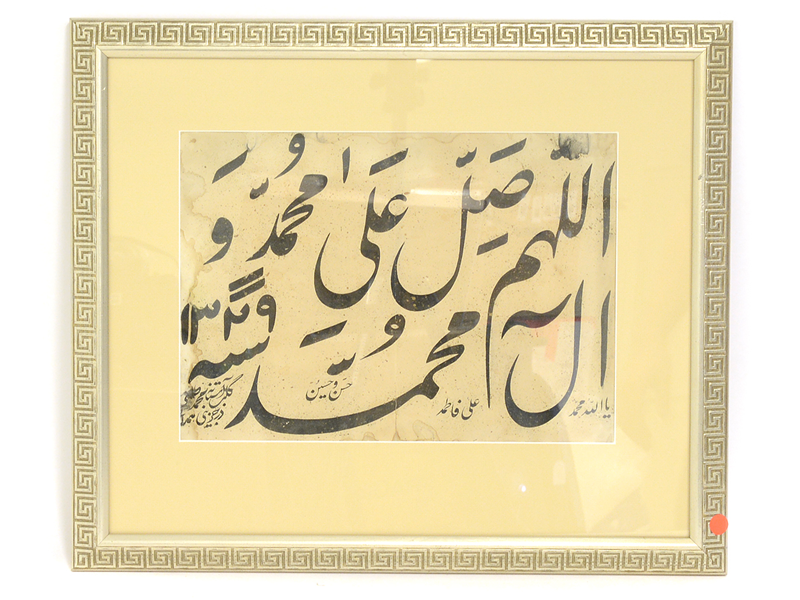 اللّهم صَلِّ عَلىٰ مُحَمَّدٍ وَ
آل محمّدٍ
سنه
یا الله محمد علی فاطمه حسن و حسین